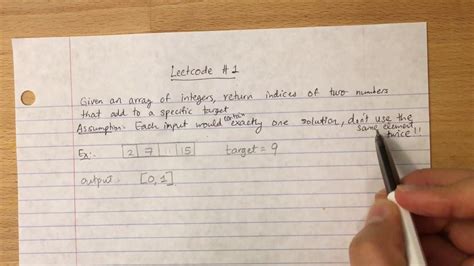 Leetcode #1
Given an array of integers, return indices of two numbers
that add to a specific target
Assumption: Each input would contain exactly one solution, don't use the
same element
twice!!
Ex:- [2|7|..|15] target = 9
output: [0,1]